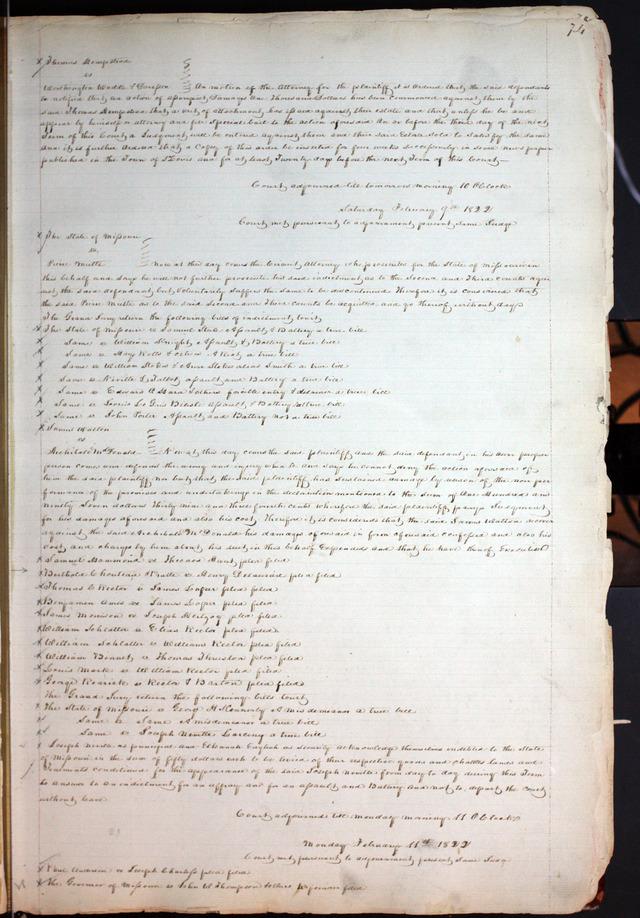 74
Thomas Hempstead
vs
Washington Waddle & On motion of the Attorney for the plaintiff it is Ordered that the said defendants
be notified that an action of assumpsit Damages One Thousand Dollars has been commenced against them by the
said Thomas Hempstead that a writ of attachment has issued against their estate and that unless he be and
appear by himself or attorney and file Special bail to the action aforesaid on or before the third day of the next
Term of this Court a Judgment will be entered against them and their said Estate Sold to Satisfy the same
And it is further ordered that a Copy of this order be inserted for four weeks successively in some news paper
published in the Town of St Louis and for at least Twenty days before the next Term of this Court
Court adjourned till tomorrow morning 10 OClock
Saturday February 9th 1822
Court met pursuant to adjournment present same Judge
The State of Missouri
vs
Now at this day comes the Circuit Attorney who prosecutes for the State of Missouri in
this behalf and says he will not further prosecute his said indictment as to the second and Third counts against
the said defendant but Voluntarily suffers the same to be discontinued Therefore it is considered that
the said as to the said Second and Third Counts be acquitted and go thereof without day
The Grand Jury return the following bills of indictment to wit
The State of Missouri vs Samuel Assault & Battery a true bill
Same vs William Knight Assault & Battery a true bill
Same vs a true bill
Same vs William Stokes & Stokes alias Smith a true bill
Same vs Talbot assault and Battery a true bill
Same vs Edward & others forcible entry & detainer a true bill
Same vs Louis Assault & Battery a true bill
Same vs John Assault and Battery not a true bill
Samuel Walton
vs
Archibald McDonald Now at this day comes the said plaintiff and the said defendant in his own proper
person comes and defends the wrong and injury when &c and says he cannot deny the action aforesaid of
him the said plaintiff nor but that the said plaintiff has sustained damage by reason of the non per
formance of the promises and undertakings in the declaration mentioned to the sum of One Hundred and
ninety Seven dollars Thirty nine and three fourth cents wherefore the said plaintiff prays Judgment
for his damages aforesaid and also his cost Therefore it is considered that the said Walton recover
against the said Archibald McDonald his damages aforesaid in form aforesaid confessed and also his
cost and charges by him about his suit in this behalf Expended and that he have thereof Execution
Samuel Hammond vs Theodore Hunt pleas filed
Berthold & Chouteau & Pratte vs Henry pleas filed
Thomas C Rector vs James pleas filed
Benjamin vs James pleas filed
James Morrison vs Joseph Hertzog pleas filed
William Schlatter vs Elias Rector pleas filed
William Schlatter vs William Rector pleas filed
William Bennett vs Thomas pleas filed
Louis vs William Rector pleas filed
George vs Rector & Barton pleas filed
The Grand Jury return the following bills to wit
The State of Missouri vs George H Kennerly A misdemeanor a true bill
Same vs Same A misdemeanor a true bill
Same vs Joseph Neville Larceny a true bill
Joseph Neville as principal and English as security acknowledge themselves indebted to the State
of Missouri in the sum of fifty dollars each to be levied of their respective goods and chattles lands and
tenements conditioned for the appearance of the said Joseph Neville from day to day during this Term
to answer to an indictment for an affray and for an assault and Battery and not to depart the court
without leave
Court adjourned till monday morning 11 OClock
Monday February 11th 1822
Court met pursuant to adjournment present same Judge
vs Joseph Charless pleas filed
The Governor of Missouri vs John W Thompson & others filed